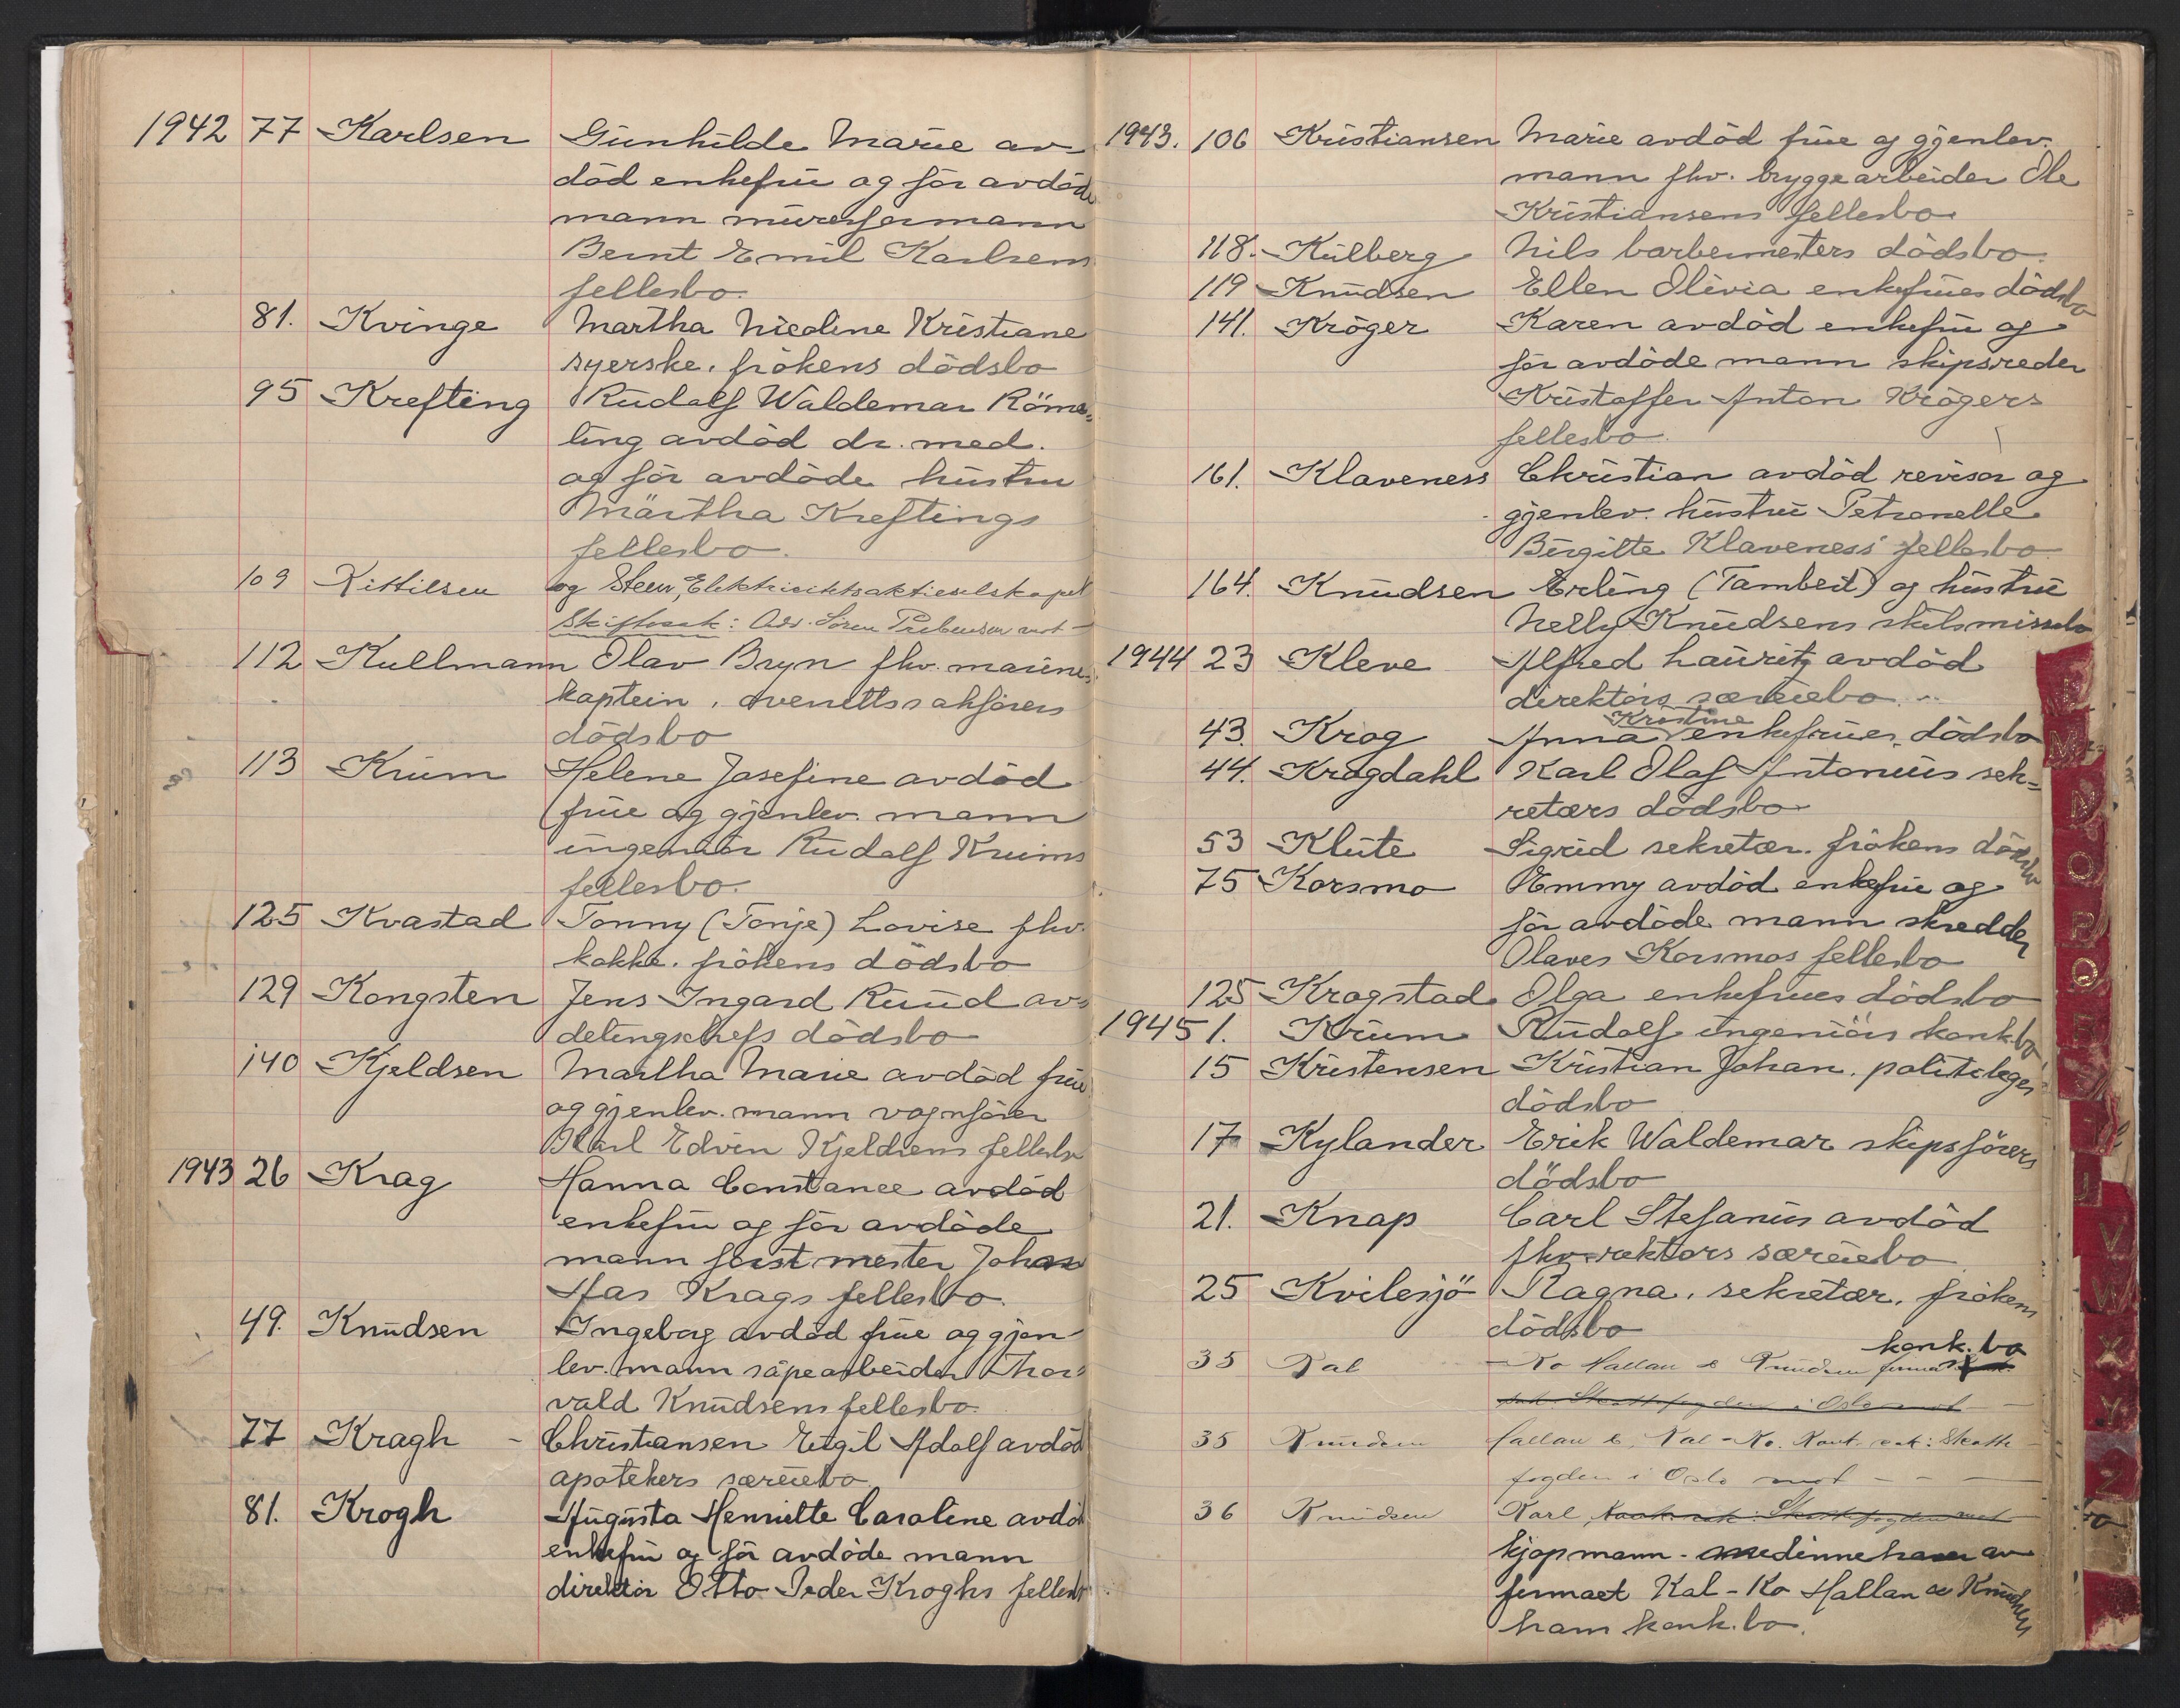 1942 77 Karlsen Gunhilde Marie av-
död enkefru og för avdöde
mann murerformann
Bernt Emil Karlsens
fellesbo.
81. Kvinge Martha Nicoline Kristiane
syerske. frökens dödsbo
95 Krefting Rudolf Waldemar Röme-
ling avdöd dr. med.
og för avdöde hustru
Märtha Kreftings
fellesbo.
109 Kittilsen og Steen, Elektricitetsaktieselskapet
Skiftesak: Adv. Sören Prebensen mot -
112 Kullmann Olav Bryn fhv. marine-
kaptein. overrettssakförers
dödsbo
113 Krum Helene Josefine avdöd
frue og gjenlev. mann
ingeniör Rudolf Krums
fellesbo.
125 Kvastad Tonny (Tonje) Lovise fhv.
kokke. frökens dödsbo
129 Kongsten Jens Ingard Ruud av-
delingschefs dödsbo
140 Kjeldsen Martha Marie avdöd frue
og gjenlev. mann vognförer
Karl Edvin Kjeldsens fellesbo
1943 26 Krag Hanna Constance avdöd
enkefru og för avdöde
mann forstmester Johan
Has Krags fellesbo.
49. Knudsen Ingeborg avdöd frue og gjen-
lev. mann såpearbeider Thor-
vald Knudsens fellesbo.
77 Kragh - Christiansen Eigil Adolf avdöd
apotekers særeiebo
81. Krogh Augusta Henriette Caroline avdöd
enkefru og för avdöde mann
direktör Otto Peder Kroghs fellesbo
1943. 106 Kristiansen Marie avdöd frue og gjenlev.
mann fhv. bryggearbeider Ole
Kristiansens fellesbo
118. Kulberg Nils barbermesters dödsbo.
119 Knudsen Ellen Olivia enkefrues dödsbo
141. Kröger Karen avdöd enkefru og
för avdöde mann skipsreder
Kristoffer Anton Krögers
fellesbo.
161. Klaveness Christian avdöd revisor og
gjenlev. hustru Petronelle
Birgitte Klaveness' fellesbo.
164. Knudsen Erling (Tambeit) og hustru
Nelly Knudsens skilsmissebo
1944 23 Kleve Alfred Lauritz avdöd
direktörs særeiebo
Kristine
43. Krog Anna enkefrues dödsbo
44. Krogdahl Karl Olaf Antonius sek-
retærs dödsbo
53 Klute Sigrid sekretær. frökens dödsbo
75 Korsmo Emmy avdöd enkefrue og
för avdöde mann skredder
Olaves Korsmos fellesbo
125 Krogstad Olga enkefrues dödsbo
1945 1. Krum Rudolf ingeniörs konk.bo
15 Kristensen Kristian Johan. politileges
dödsbo
17 Kylander Erik Waldemar skipsförers
dödsbo
21. Knap Carl Stefanus avdöd
fhv. rektors særeiebo
25 Kvilesjö Ragna. sekretær. frökens
dödsbo
konk. bo
35 Kal - Ko Hallan & Knudsen firma
sak: Skattefogden i Oslo mot
35 Knudsen Hallan &, Kal-Ko. Konk. sak: Skatte
fogden i Oslo mot - - -
36 Knudsen Karl, Konk. sak: Skattefogden mot
kjøpmann - medinnehaver av
firmaet Kal-Ko Hallan & Knudsen
hans konk. bo.
M
N
O
P
Q
R
S
T
U
V
W
X
Y
Z